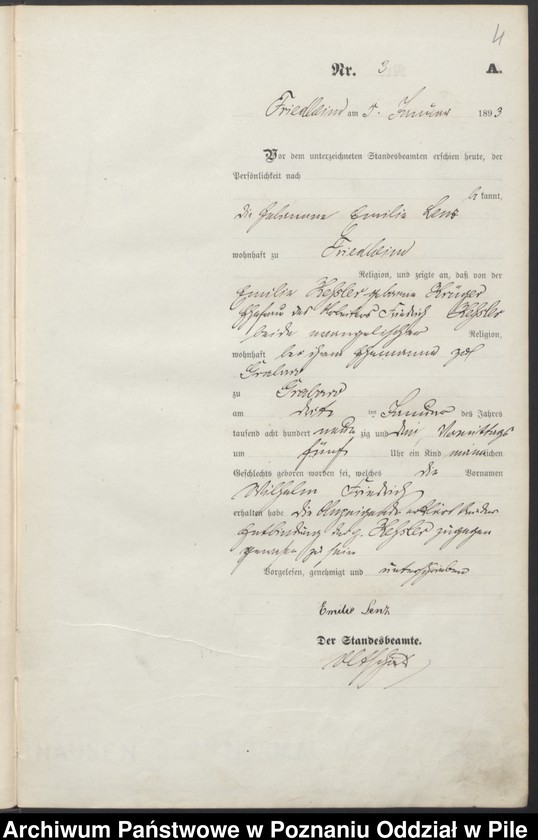 4
Nr. 3 A.
Friedheim am 5. Januar 1893
Vor dem unterzeichneten Standesbeamten erschien heute, der
Persönlichkeit nach
kannt,
die Hebamme Emilie Lenz
wohnhaft zu Friedheim
Religion, und zeigte an, daß von der
Emilie Keßler geborene Krüger
Ehefrau des Arbeiters Friedrich Keßler
beide evangelischer Religion,
wohnhaft bei ihrem Ehemanne zu
Grabau
zu Grabau
am ten Januar des Jahres
tausend acht hundert neunzig und drei, Vormittags
um fünf Uhr ein Kind männlichen
Geschlechts geboren worden sei, welches die Vornamen
Wilhelm Friedrich
erhalten habe. Die Anzeigende erklärt bei der
Entbindung der p. Keßler zugegen
gewesen zu sein
Vorgelesen, genehmigt und unterschrieben
Emilie Lenz
Der Standesbeamte.
Archiwum Państwowe w Poznaniu Oddział w Pile